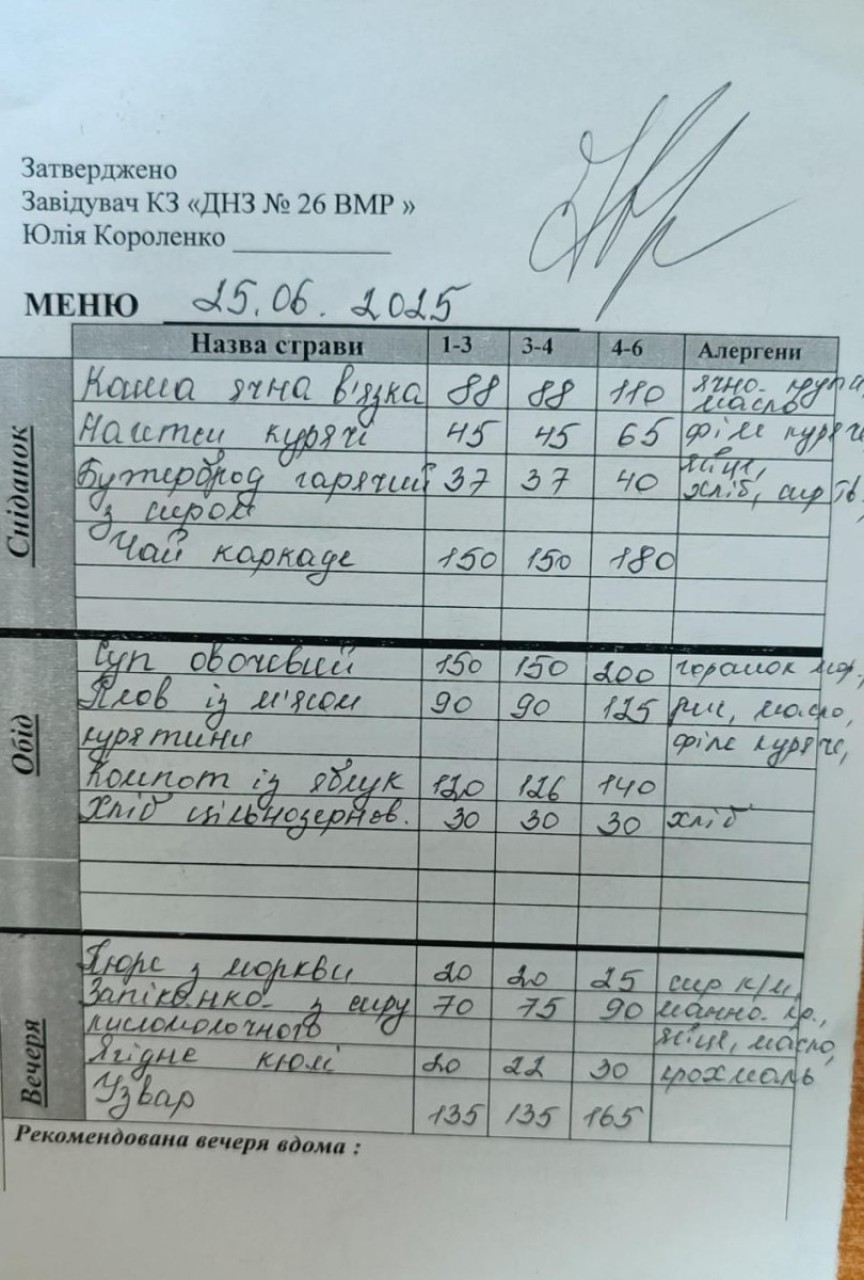 Затверджено
Завідувач КЗ «ДНЗ № 26 ВМР »
Юлія Короленко ___________
МЕНЮ 25.06.2025
Назва страви 1-3 3-4 4-6 Алергени
Сніданок
Каша ячна в'язка 88 88 110 ячно. крупи, масло
Нагетси курячі 45 45 65 філе куряче
яйце,
Бутерброд гарячий 37 37 40 хліб, сир тв,
з сиром
Чай каркаде 150 150 180
Обід
Суп овочевий 150 150 200 горошок мор.,
Плов із м'ясом 90 90 125 рис, масло,
курятини філе куряче,
Компот із яблук 120 126 140
Хліб цільнозернов. 30 30 30 хліб
Вечеря
Пюре з моркви 20 20 25 сир к/м,
Запіканка з сиру 70 75 90 манно. кр.,
кисломолочного яйце, масло,
Ягідне кюлі 20 22 30 крохмаль
Узвар 135 135 165
Рекомендована вечеря вдома :